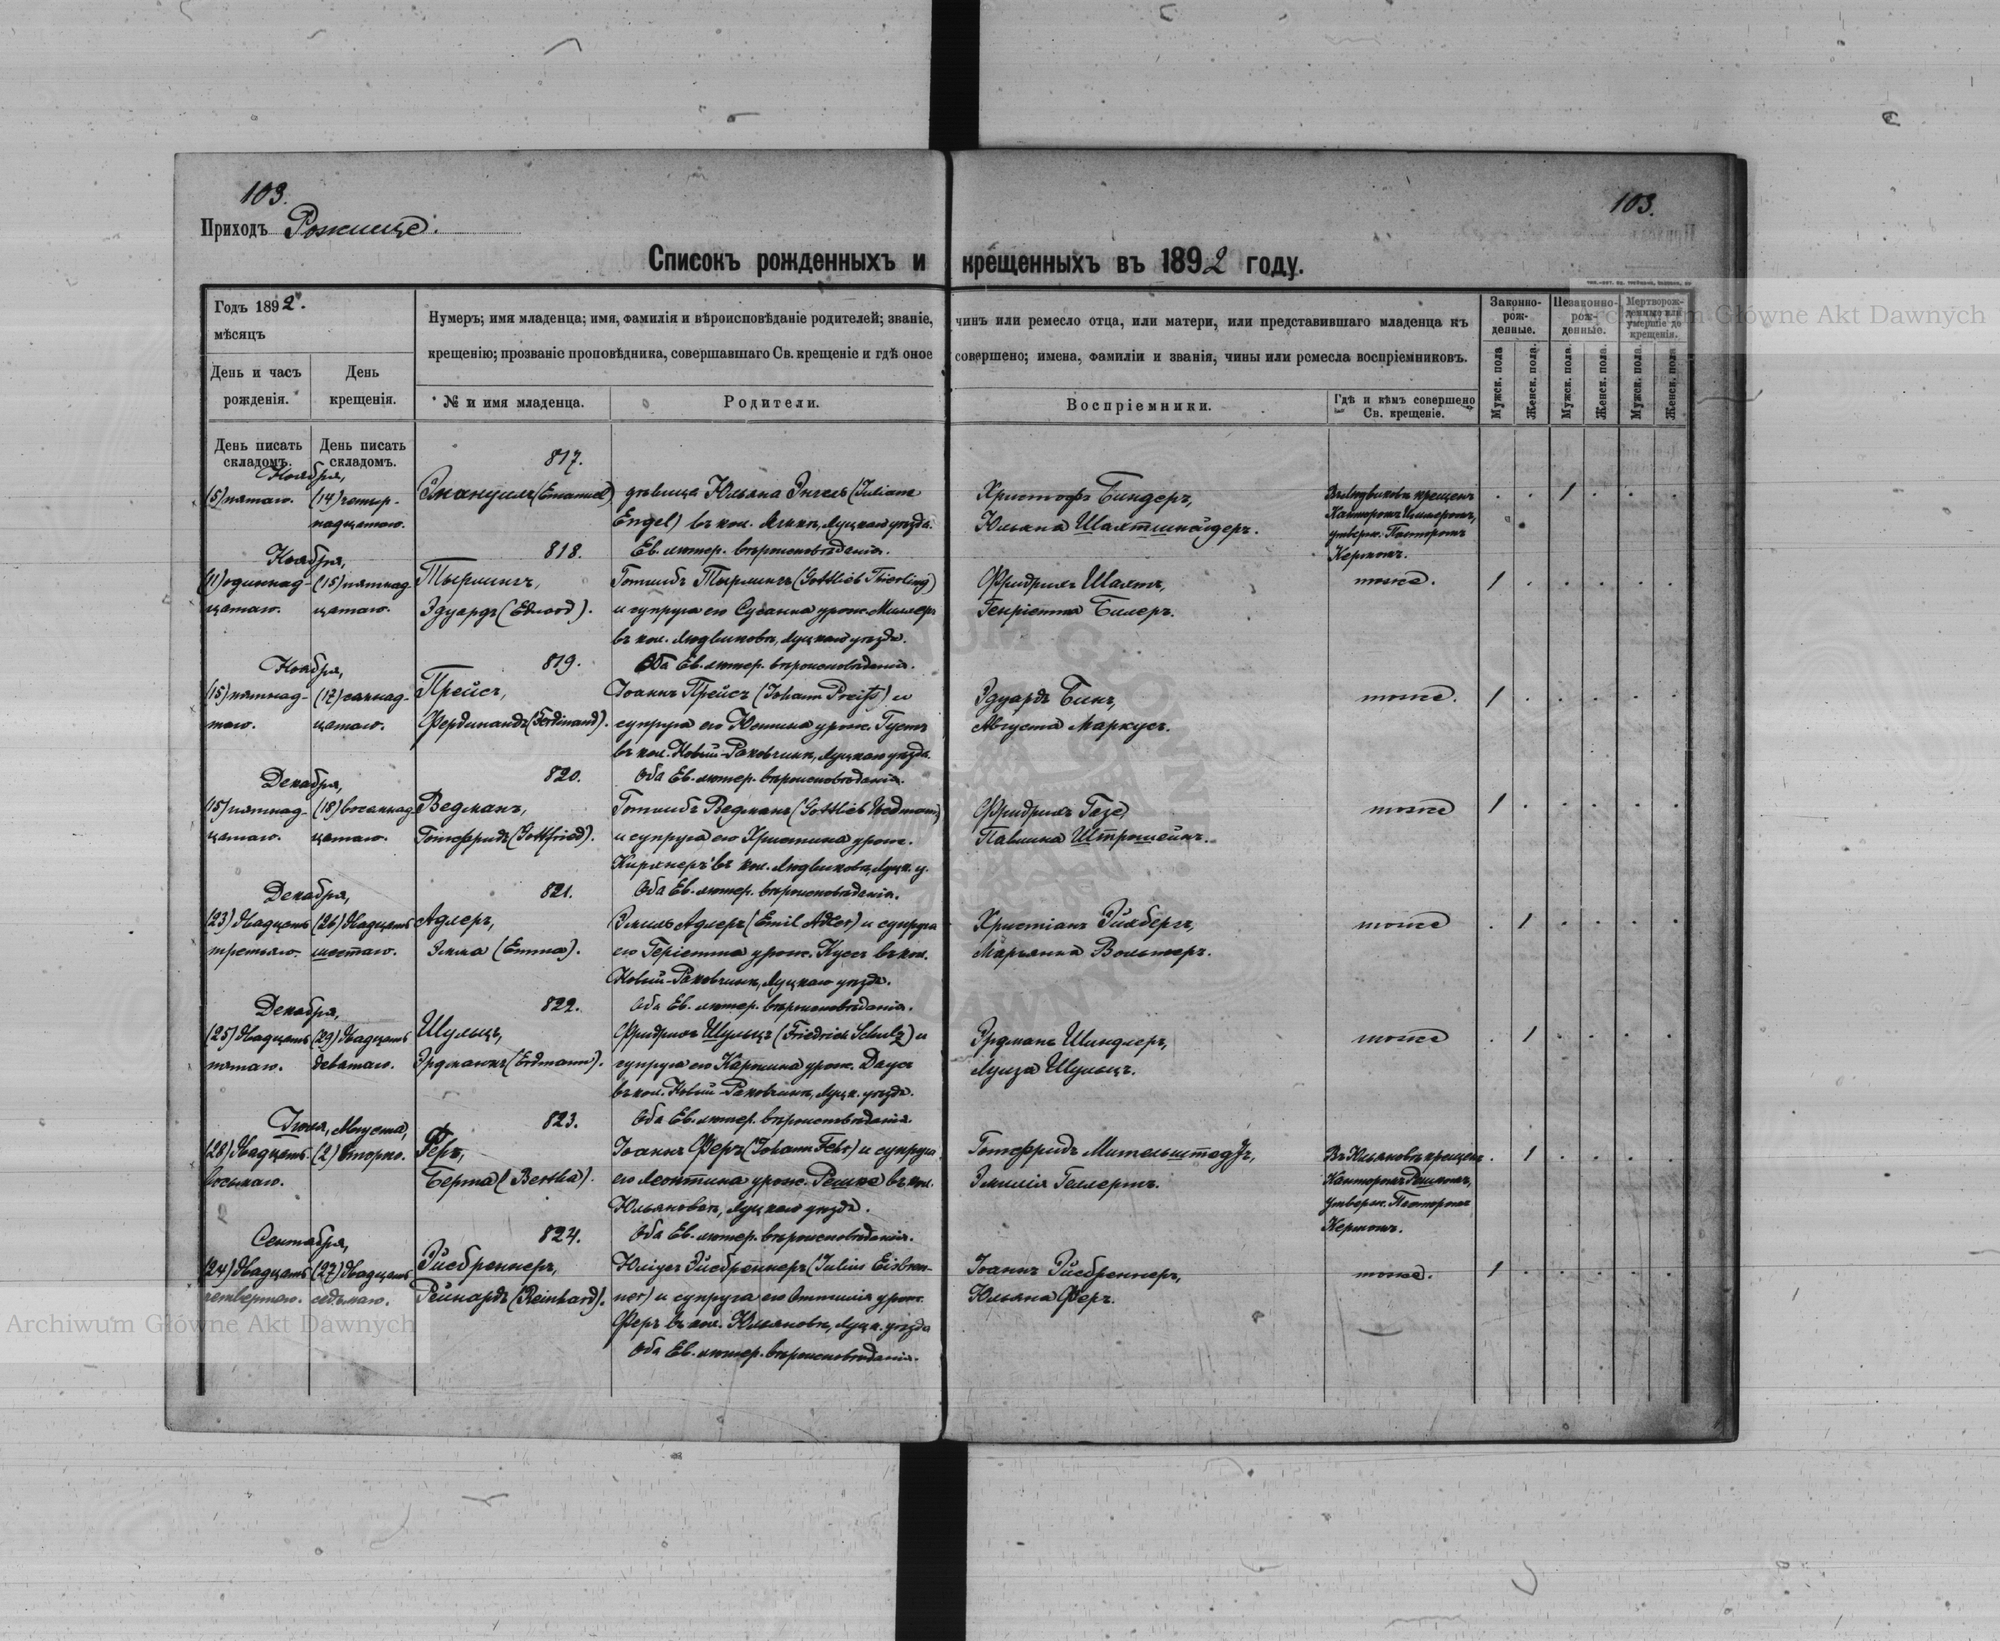 103.
103.
Приходъ Рожище.
Списокъ рожденныхъ и крещенныхъ въ 1892 году.
Годъ 1892.
мѣсяцъ
День и часъ рожденія.
День крещенія.
Нумеръ; имя младенца; имя, фамилія и вѣроисповѣданіе родителей; званіе, чинъ или ремесло отца, или матери, или представившаго младенца къ
крещенію; прозваніе проповѣдника, совершавшаго Св. крещеніе и гдѣ оное совершено; имена, фамиліи и званія, чины или ремесла воспріемниковъ.
№ и имя младенца.
Родители.
Воспріемники.
Гдѣ и кѣмъ совершено Св. крещеніе.
Законно-рож-денные.
Незаконно-рож-денные.
Мертворож-денные или умершіе до крещенія.
Мужск. пола
Женск. пола.
Мужск. пола.
Женск. пола.
Мужск. пола.
Женск. пола
День писать складомъ.
День писать складомъ.
817.
Ноября,
(5) пятаго.
(14) четыр-
надцатаго.
Эмануилъ (Emanuel)
дѣвица Юльяна Энгель (Juliane
Engel) въ кол. Луцкаго уѣзда.
Ев. лютер. вѣроисповѣданія.
Христофъ Биндеръ,
Юльяна Шахтшнейдеръ.
Въ Людвиковкѣ крещенъ
Канторомъ
утверж. Пасторомъ
Кермомъ.
1
818.
Ноября,
(11) одиннад-
цатаго.
(15) пятнад-
цатаго.
Тырлингъ,
Эдуардъ (Eduard).
Готлибъ Тырлингъ (Gottlieb Tierling)
и супруга его Сусанна урож. Миллеръ
въ кол. Людвиковкѣ, Луцкаго уѣзда.
Оба Ев. лютер. вѣроисповѣданія.
Фридрихъ Шахтъ,
Генріетта Билеръ.
тоже.
1
819.
Ноября,
(15) пятнад-
таго.
(17) семнад-
цатаго.
Прейсъ,
Фердинандъ (Ferdinand).
Іоаннъ Прейсъ (Johann Preiß) и
супруга его Юстина урож. Густъ
въ кол. Новый-Раковчикъ, Луцкаго уѣзда.
Оба Ев. лютер. вѣроисповѣданія.
Эдуардъ Бинъ,
Августа Маркусъ.
тоже.
1
820.
Декабря,
(15) пятнад-
цатаго.
(18) восемнад-
цатаго.
Ведманъ,
Готфридъ (Gottfried).
Готлибъ Ведманъ (Gottlieb Wedmann)
и супруга его Христина урож.
Кирхнеръ въ кол. Людвиковкѣ, Луцк. у.
Оба Ев. лютер. вѣроисповѣданія.
Фридрихъ Гезе,
Павлина Штрошейнъ.
тоже
1
821.
Декабря,
(23) двадцать
третьяго.
(26) двадцать
шестаго.
Адлеръ,
Эмма (Emma).
Эмиль Адлеръ (Emil Adler) и супруга
его Геріетта урож. Куссъ въ кол.
Новый-Раковчикъ, Луцкаго уѣзда.
Оба Ев. лютер. вѣроисповѣданія.
Христіанъ Эйхбергъ,
Марьянна Вольтеръ.
тоже
1
822.
Декабря,
(25) двадцать
пятаго.
(29) двадцать
девятаго.
Шульцъ,
Эрдманнъ (Erdmann).
Фридрихъ Шульцъ (Friedrich Schulz) и
супруга его Каролина урож. Даусъ
въ кол. Новый-Раковчикъ, Луцк. уѣзда.
Оба Ев. лютер. вѣроисповѣданія.
Эрдманъ Шиндлеръ,
Луиза Шульцъ.
тоже
1
823.
Іюля, Августа,
(28) двадцать
восьмаго.
(2) второго.
Феръ,
Берта (Bertha).
Іоаннъ Феръ (Johann Fehr) и супруга
его Леонтина урож. Решке въ кол.
Юльяновкѣ, Луцкаго уѣзда.
Оба Ев. лютер. вѣроисповѣданія.
Готфридъ Мительштедтъ,
Эмилія Геллертъ.
Въ Юльяновкѣ крещен.
Канторомъ Решкомъ,
утверж. Пасторомъ
Кермомъ.
1
824.
Сентября,
(24) двадцать
четвертаго.
(27) двадцать
седьмаго.
Эйсбреннеръ,
Рейнардъ (Reinhard).
Юліусъ Эйсбреннеръ (Julius Eisbren-
ner) и супруга его Оттилія урож.
Феръ въ кол. Юльяновкѣ, Луцк. уѣзда
Оба Ев. лютер. вѣроисповѣданія.
Іоаннъ Эйсбреннеръ,
Юльяна Феръ.
тоже.
1
Archiwum Główne Akt Dawnych
Archiwum Główne Akt Dawnych